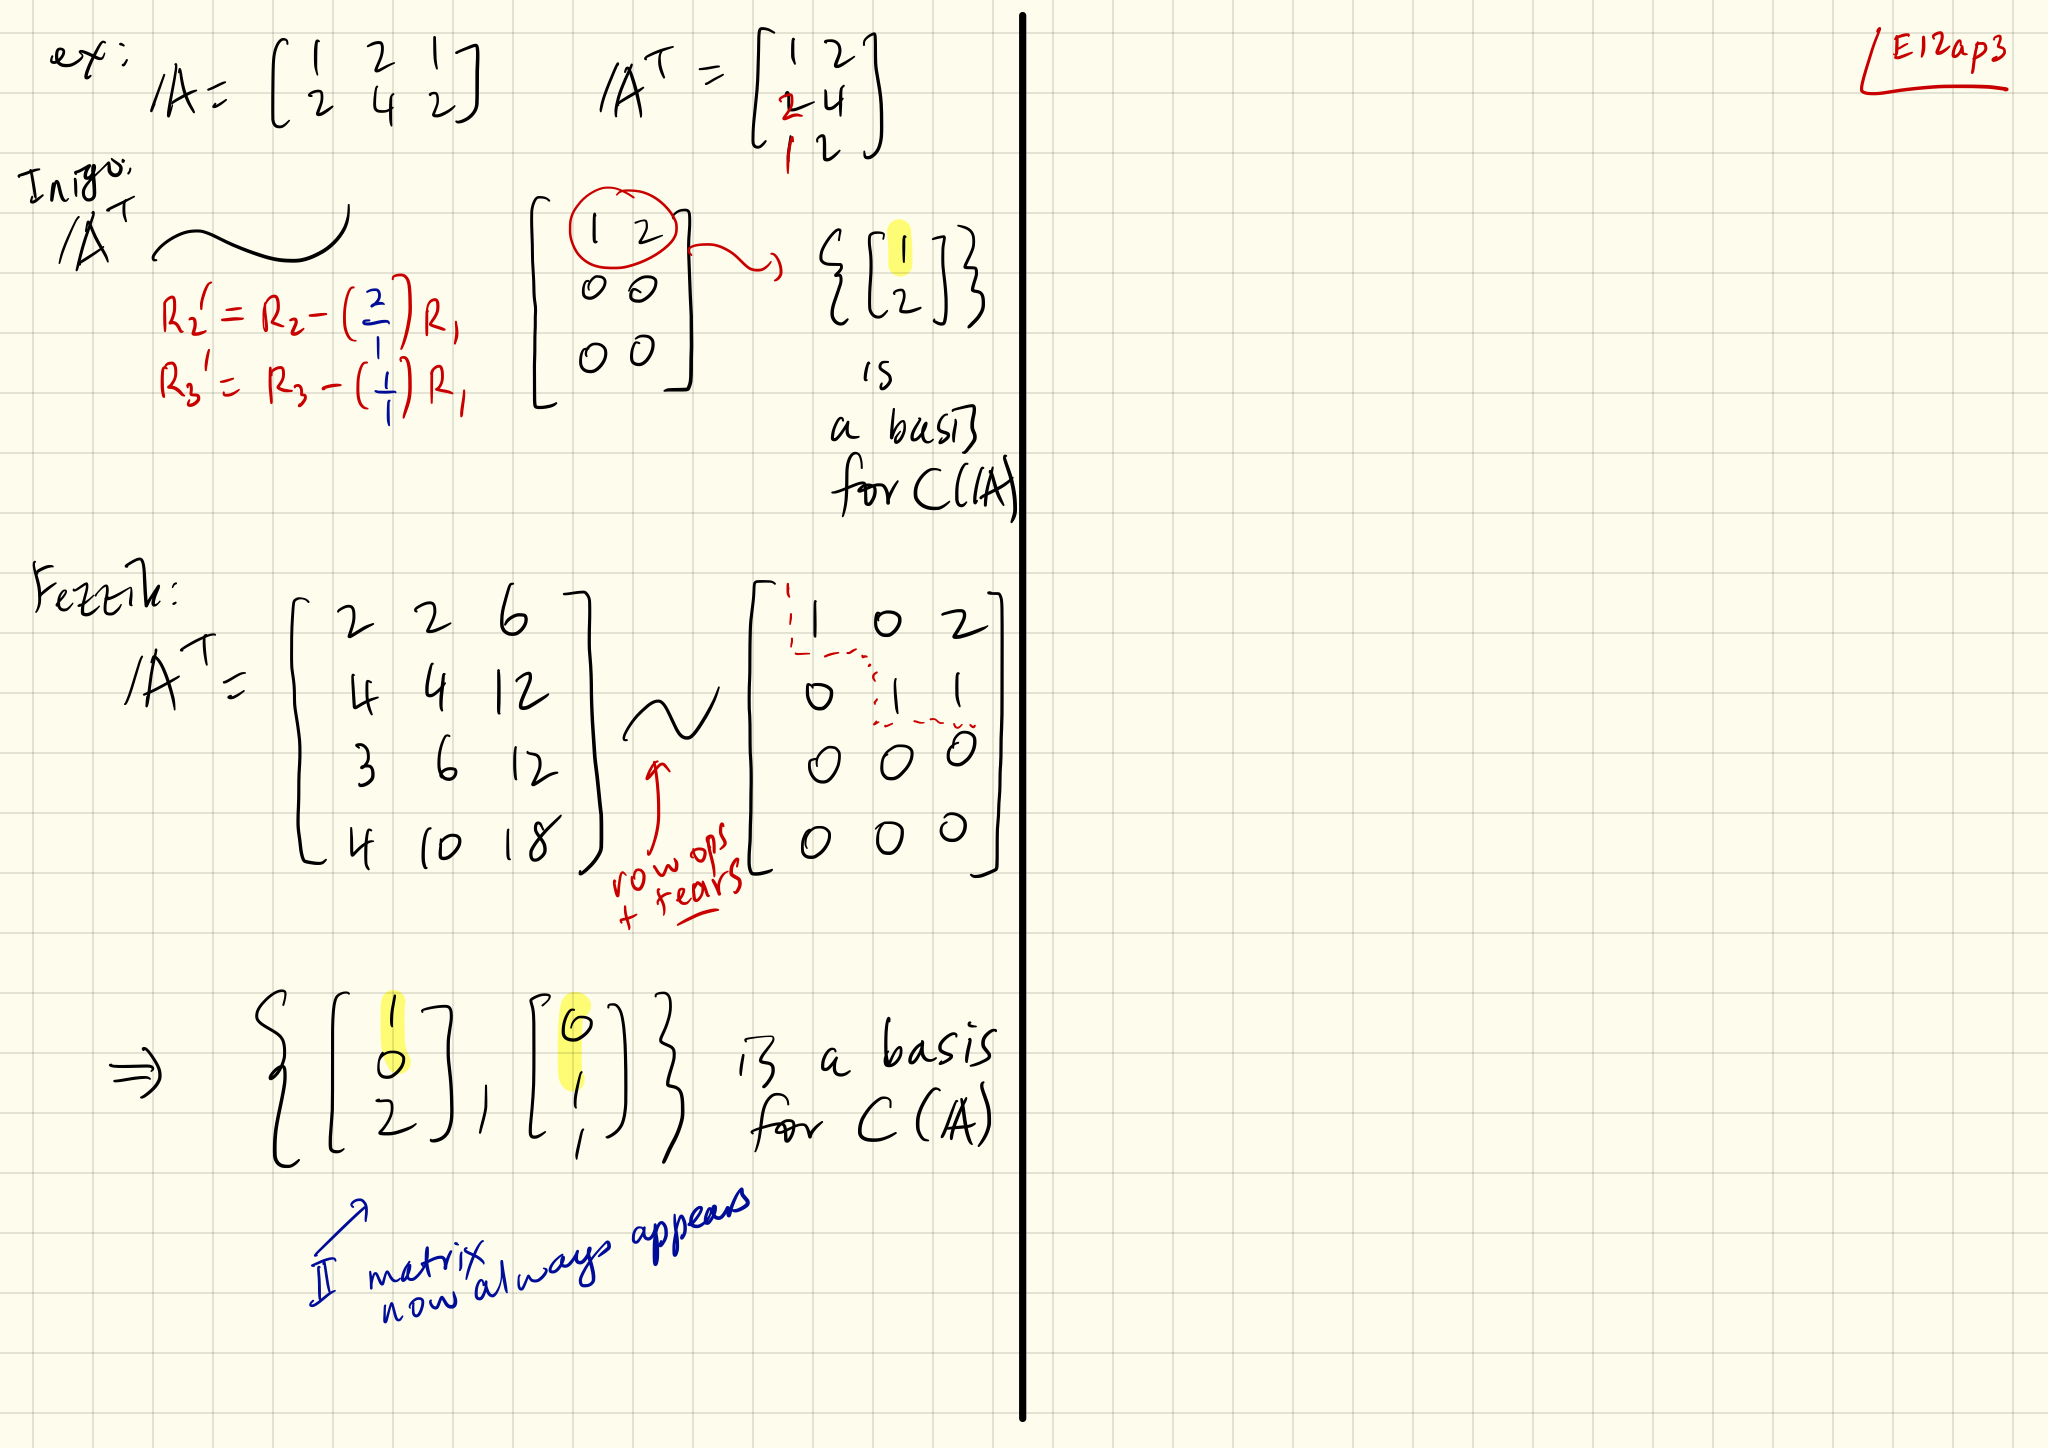 E12ap3
ex: A = [ 1 2 1 ; 2 4 2 ] Aᵀ = [ 1 2 ; 2 4 ; 1 2 ]
Inigo:
Aᵀ ~ [ 1 2 ; 0 0 ; 0 0 ] → { [ 1 ; 2 ] }
R₂' = R₂ - (2/1) R₁
R₃' = R₃ - (1/1) R₁
is
a basis
for C(A)
Fezzik:
Aᵀ = [ 2 2 6 ; 4 4 12 ; 3 6 12 ; 4 10 18 ] ~ [ 1 0 2 ; 0 1 1 ; 0 0 0 ; 0 0 0 ]
row ops
+ tears
⇒ { [ 1 ; 0 ; 2 ] , [ 0 ; 1 ; 1 ] } is a basis
for C(A)
𝕀 matrix
now always appears